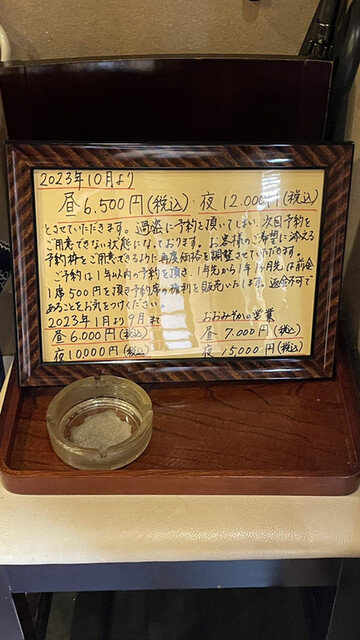 2023年10月より
昼6.500円(税込)・夜12.000円(税込)
とさせていただきます。過盛に予約を頂いてしまい、次回予約を
ご用意できない状態になっております。お客様のご希望に冷える
予約枠をご用意できるように再度価格を調整させていただきます。
ご予約は1年以内の予約を頂き、1年先から1年1ヶ月先は前金
1席500円を頂き予約席の権利を販売いたします。返金不可で
あることをお気をつけください。
2023年1月より9月まで おおみそかの営業
昼6.000円(税込) 昼 7.000円(税込)
夜10,000円(税込) 夜 15,000円(税込)